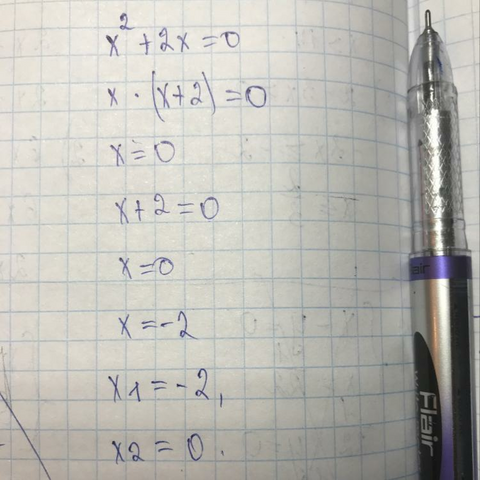 x² + 2x = 0
x · (x+2) = 0
x = 0
x + 2 = 0
x = 0
x = -2
x1 = -2,
x2 = 0.
Flair